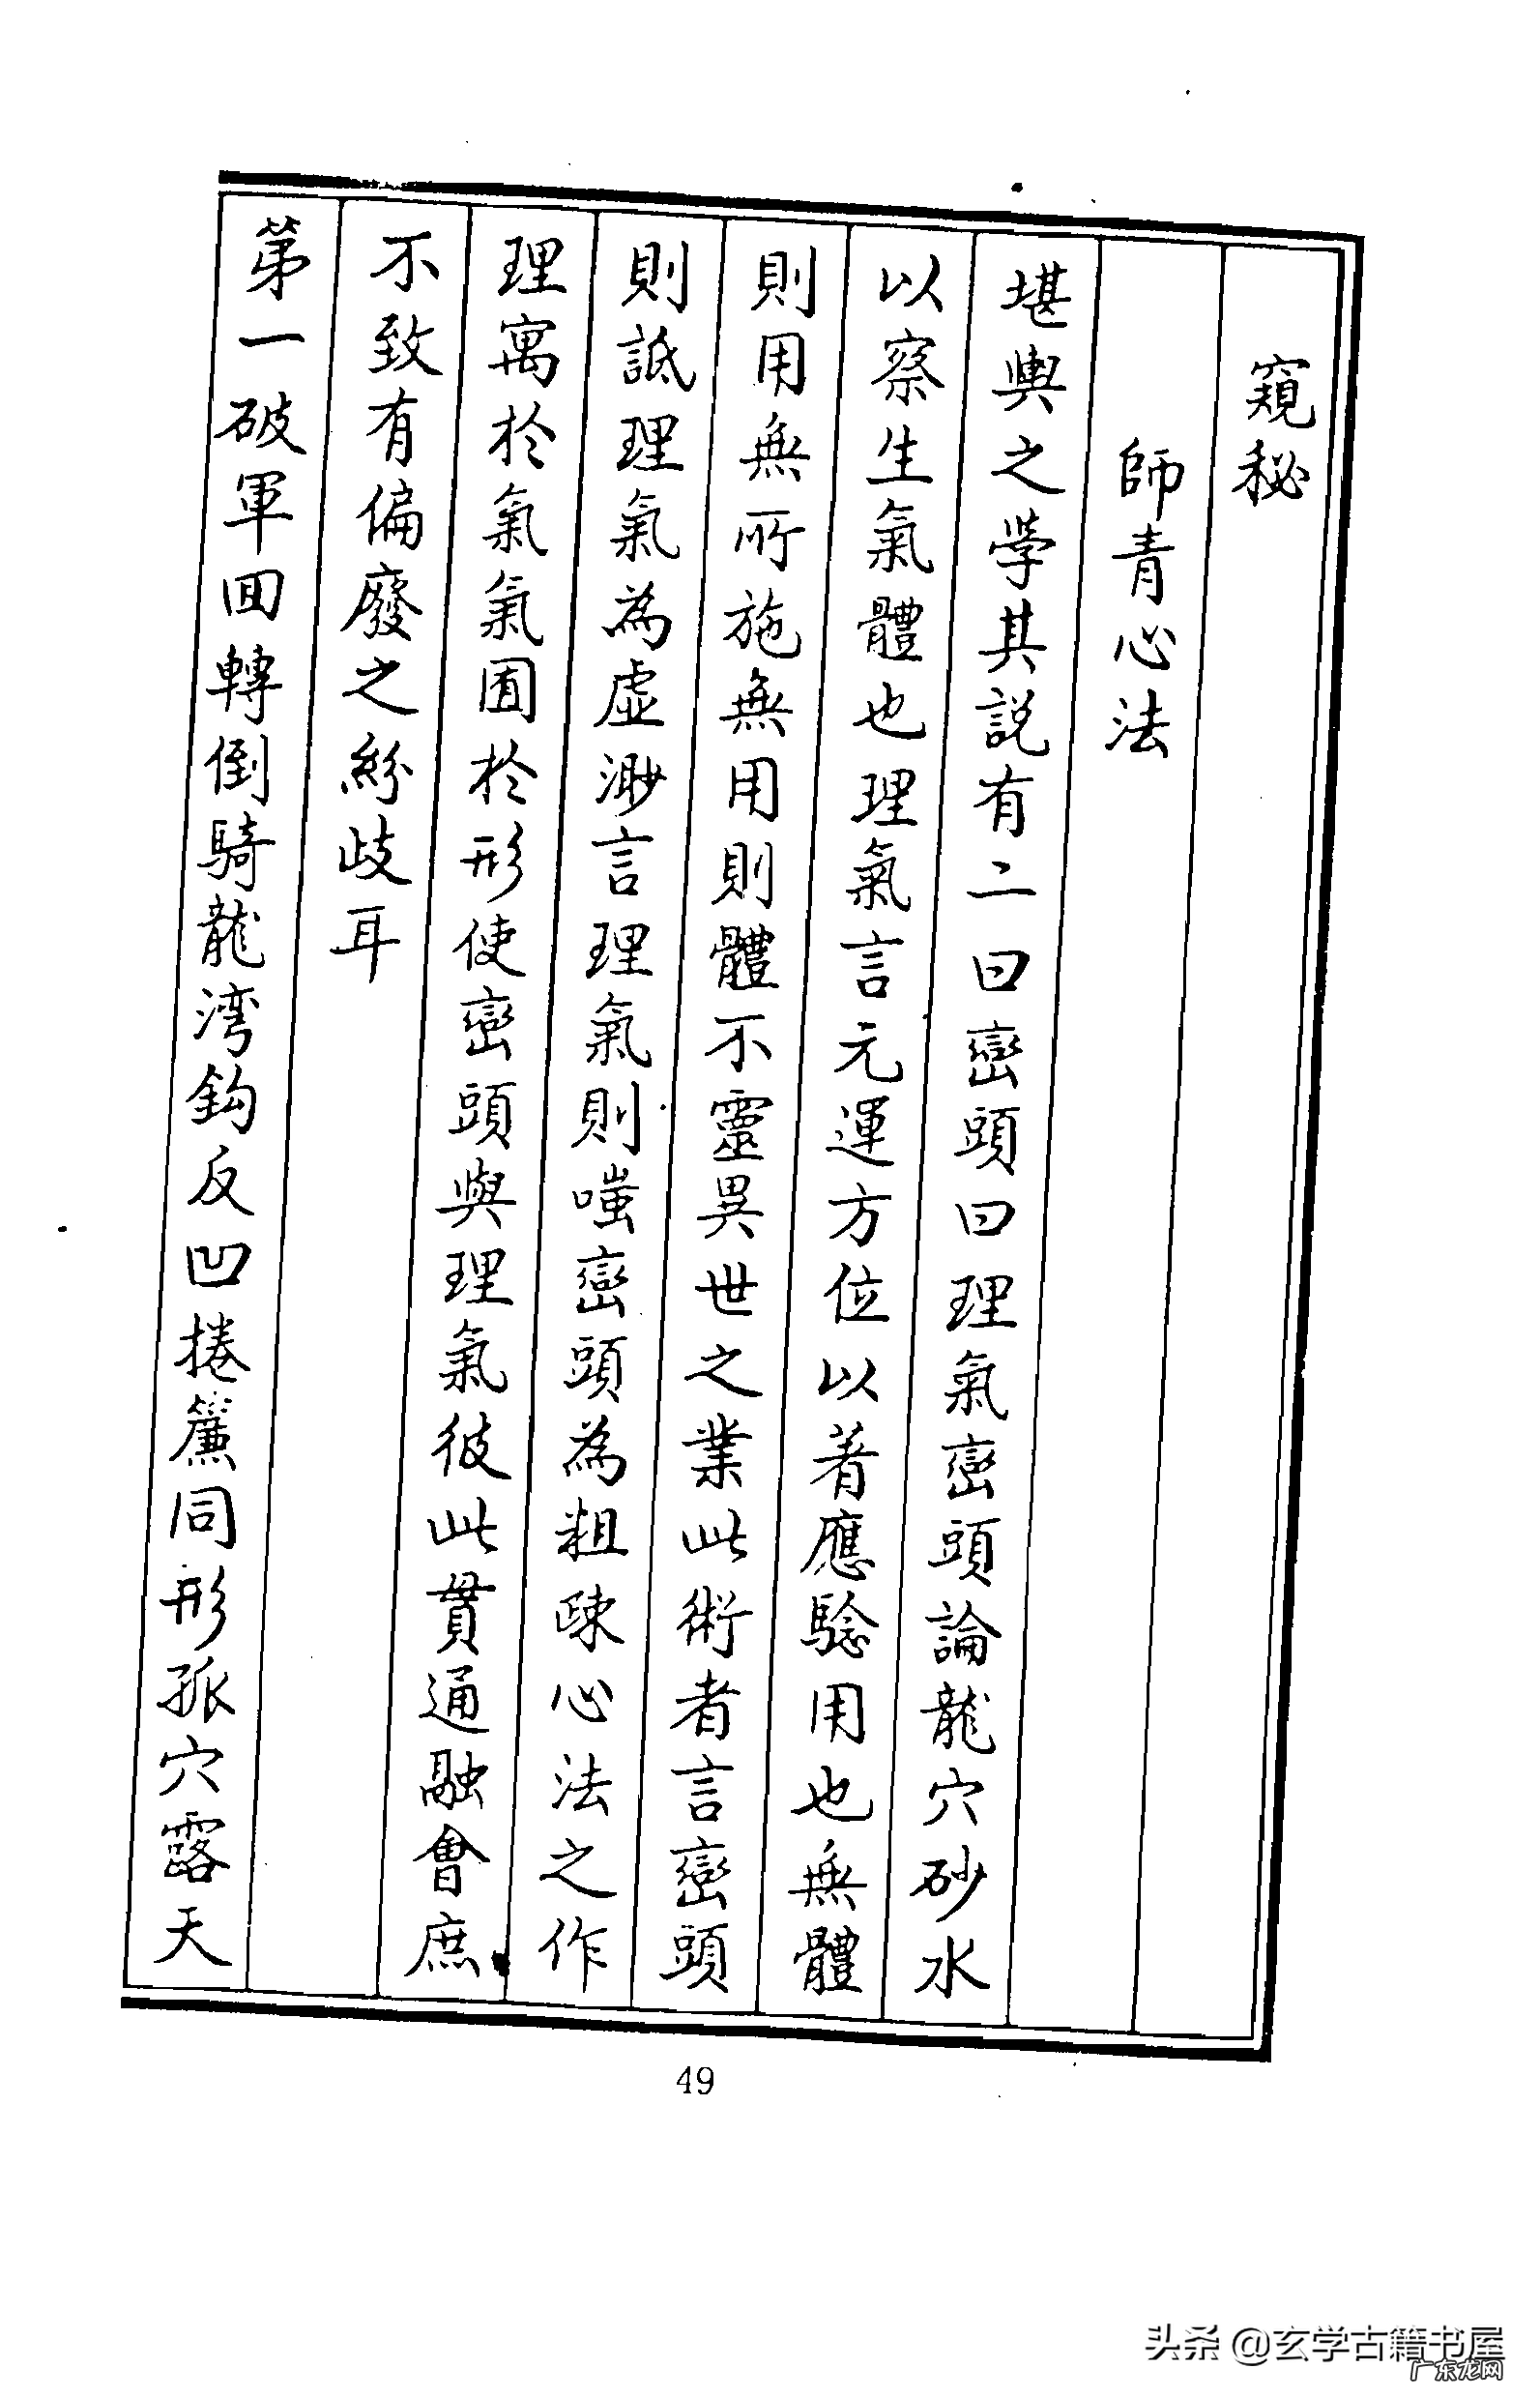 窺秘
師青心法
堪輿之學其説有二曰巒頭曰理氣巒頭論龍穴砂水
以察生氣體也理氣言元運方位以著應騐用也無體
則用無所施無用則體不靈異世之業此術者言巒頭
則詆理氣為虛渺言理氣則嗤巒頭為粗疎心法之作
理寓於氣氣囿於形使巒頭與理氣彼此貫通融會庶
不致有偏廢之紛歧耳
第一破軍囬轉倒騎龍湾鈎反凹捲簾同形孤穴露天
49
头条 @玄学古籍书屋
广东龙网